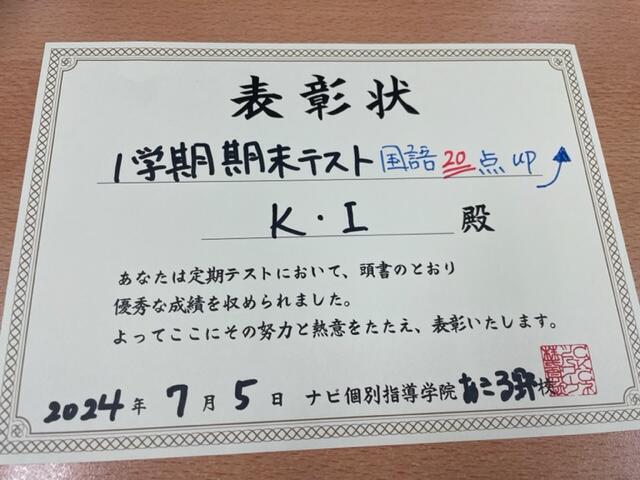 表彰状
1学期期末テスト国語20点up
K・I 殿
あなたは定期テストにおいて、頭書のとおり
優秀な成績を収められました。
よってここにその努力と熱意をたたえ、表彰いたします。
2024年7月5日 ナビ個別指導学院 あころ野校